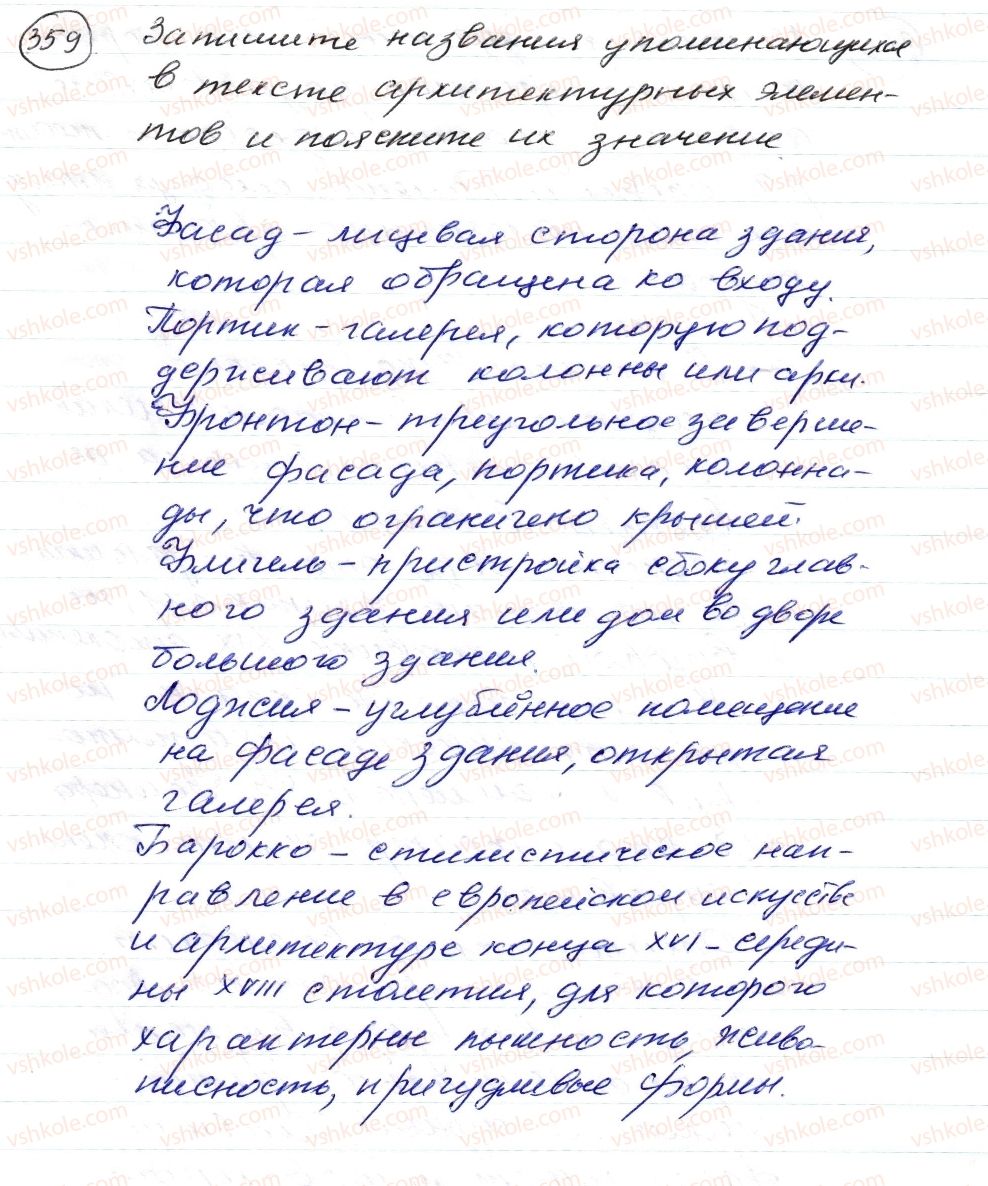 359 Запишите названия упоминающихся
в тексте архитектурных элемен-
тов и поясните их значение.
Фасад – лицевая сторона здания,
которая обращена ко входу.
Портик – галерея, которую под-
держивают колонны или арки.
Фронтон – треугольное заверше-
ние фасада, портика, колонна-
ды, что ограничено крышей.
Флигель – пристройка сбоку глав-
ного здания или дом во дворе
большого здания.
Лоджия – углублённое помещение
на фасаде здания, открытая
галерея.
Барокко – стилистическое нап-
равление в европейском искусстве
и архитектуре конца XVI – середи-
ны XVIII столетия, для которого
характерны пышность, живо-
писность, причудливые формы.